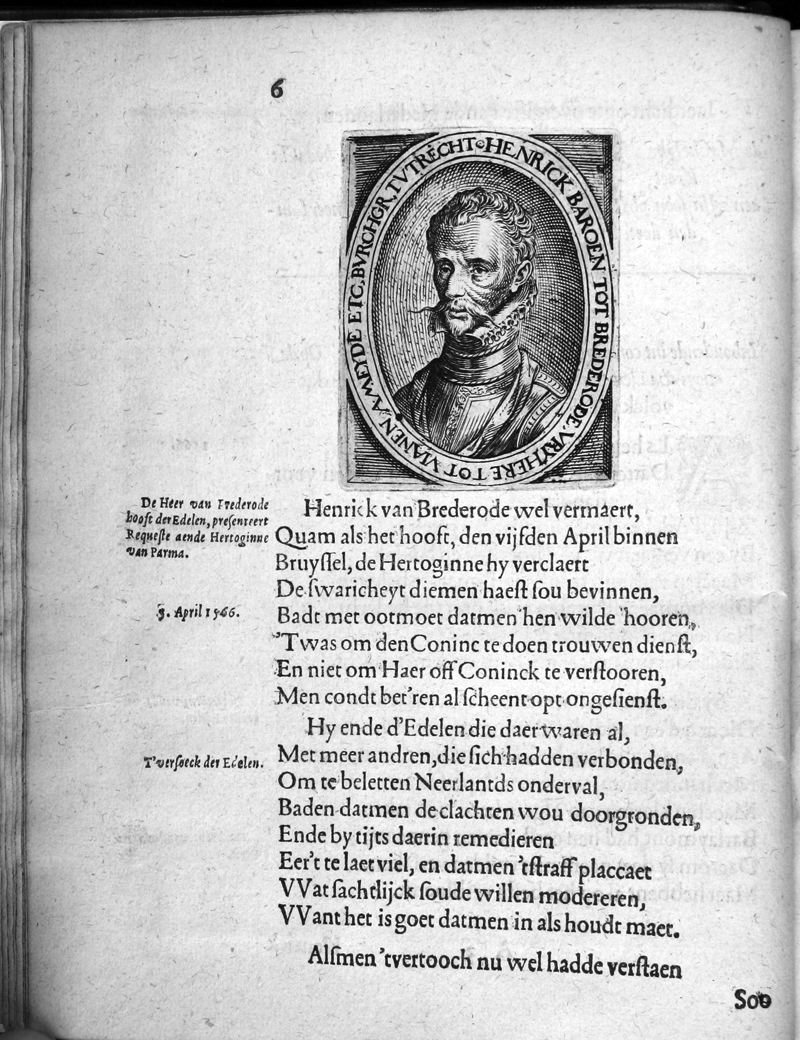 6
HENRICK BAROEN TOT BREDERODE. VRYHERE TOT VIANEN AMEYDE ETC. BVRCHGR. TVTRECHT
De Heer van Brederode
hooft der Edelen, presenteert
Requeste aende Hertoginne
van Parma.
Henrick van Brederode wel vermaert,
Quam als het hooft, den vijfden April binnen
Bruyssel, de Hertoginne hy verclaert
De swaricheyt diemen haest sou bevinnen,
5. April 1566.
Badt met ootmoet datmen hen wilde hooren,
'Twas om den Coninc te doen trouwen dienst,
En niet om Haer off Coninck te verstooren,
Men condt bet'ren al scheent opt ongesienst.
Hy ende d'Edelen die daer waren al,
T'versoeck der Edelen.
Met meer andren, die sich hadden verbonden,
Om te beletten Neerlantds onderval,
Baden datmen de clachten wou doorgronden,
Ende by tijts daerin remedieren
Eer't te laet viel, en datmen 'tstraff placcaet
VVat sachtlijck soude willen modereren,
VVant het is goet datmen in als houdt maet.
Alsmen 'tvertooch nu wel hadde verstaen
Soo